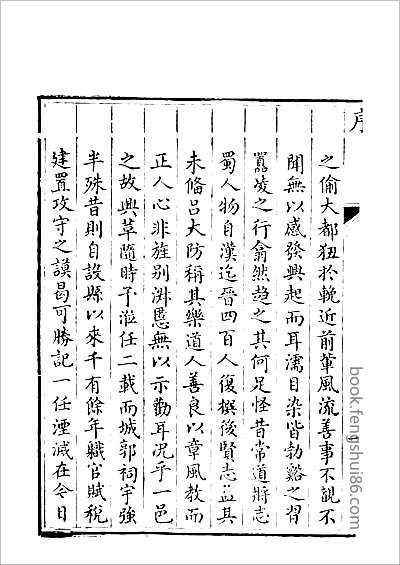 序
之偷大都狃於輓近前軰風流善事不覩不
聞無以感發興起而耳濡目染皆勃谿之習
嚚凌之行翕然趍之其何足怪昔常道將志
蜀人物自漢迄晉四百人復撰後賢志益其
未備吕大防稱其樂道人善良以章風教而
正人心非旌别淑慝無以示勸耳況乎一邑
之故興革隨時予涖任二載而城郭祠宇強
半殊昔則自設縣以來千有餘年軄官賦税
建置攻守之謨曷可勝記一任湮滅在今日
book.fengshui86.com